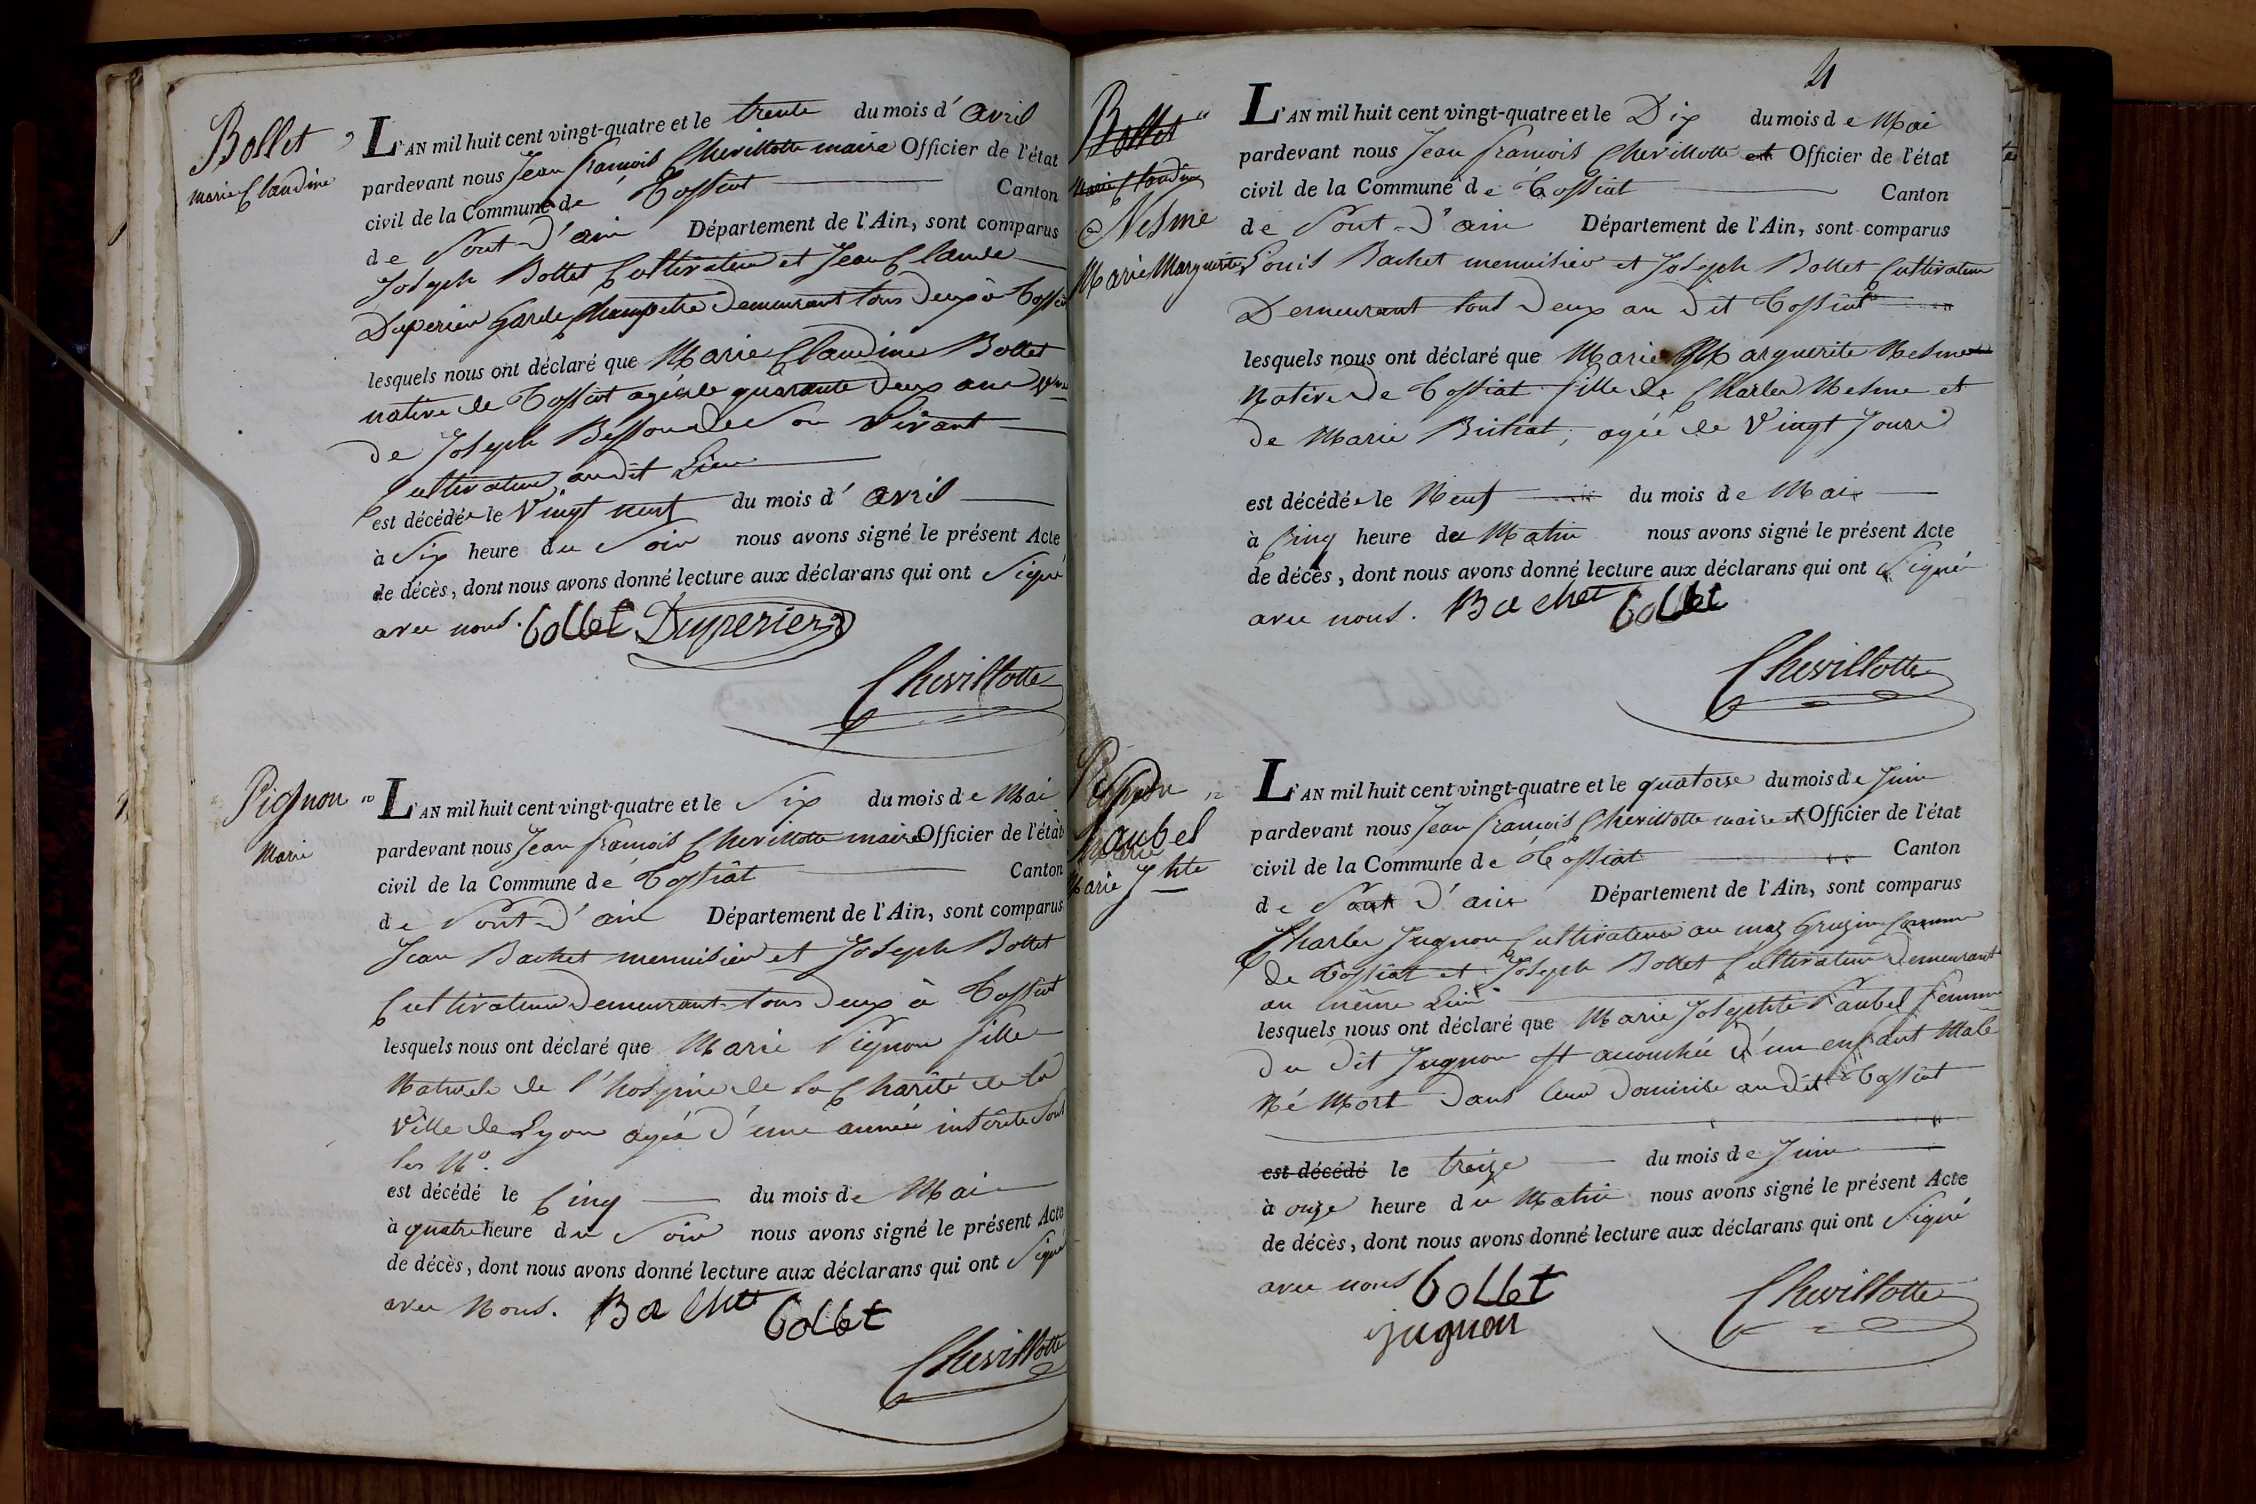 Bollet
marie Claudine
9
L'AN mil huit cent vingt-quatre et le trente du mois d' avril
pardevant nous Jean françois Chevillotte maire Officier de l'état
civil de la Commune de Tossiat Canton
de Pont-d'ain Département de l'Ain, sont comparus
Joseph Bollet Cultivateur et Jean Claude
Duperier Garde Champetre demeurant tous deux à Tossiat
lesquels nous ont déclaré que Marie Claudine Bollet
native de Tossiat agée de quarante deux ans
de Joseph de son vivant
Cultivateur audit Lieu
est décédée le Vingt neuf du mois d' avril
à Six heure du Soir nous avons signé le présent Acte
de décès, dont nous avons donné lecture aux déclarans qui ont Signé
avec nous. bollet Duperier
Chevillotte
Pignon
Marie
10
L'AN mil huit cent vingt-quatre et le Six du mois de Mai
pardevant nous Jean françois Chevillotte maire Officier de l'état
civil de la Commune de Tossiat Canton
de Pont-d'ain Département de l'Ain, sont comparus
Jean Bachet menuisier et Joseph Bollet
Cultivateur demeurant tous deux à Tossiat
lesquels nous ont déclaré que Marie Pignon fille
Naturele de l'hospice de la Charité de la
Ville de Lyon agée d'une année inscrite sous
les No.
est décédé le Cinq du mois de Mai
à quatre heure du Soir nous avons signé le présent Acte
de décès, dont nous avons donné lecture aux déclarans qui ont Signé
avec Nous. Bachet bollet
Chevillotte
21
Bollet
Marie Claudine
Nesme
Marie Marguerite
11
L'AN mil huit cent vingt-quatre et le Dix du mois de Mai
pardevant nous Jean françois Chevillotte et Officier de l'état
civil de la Commune de Tossiat Canton
de Pont-d'ain Département de l'Ain, sont comparus
Louis Bachet menuisier et Joseph Bollet Cultivateur
Demeurant tout deux au dit Tossiat
lesquels nous ont déclaré que Marie Marguerite Nesme
Native de Tossiat fille de Charles Nesme et
de Marie Bichat, agée de Vingt Jours
est décédée le Neuf du mois de Mai
à Cinq heure du Matin nous avons signé le présent Acte
de décès, dont nous avons donné lecture aux déclarans qui ont Signé
avec nous. Bachet bollet
Chevillotte
Pignon
Marie
Faubel
Marie Jhte
12
L'AN mil huit cent vingt-quatre et le quatorse du mois de Juin
pardevant nous Jean françois Chevillotte maire et Officier de l'état
civil de la Commune de Tossiat Canton
de Pont d'ain Département de l'Ain, sont comparus
Charles Jugnon Cultivateur au maz Gruzin Commune
de Tossiat et Joseph Bollet Cultivateur Demeurant
au même Lieu
lesquels nous ont déclaré que Marie Josephte Faubel femme
du dit Jugnon est accouchée d'un enfant Mâle
Né Mort dans leur domicile audit Tossiat
est décédé le treize du mois de Juin
à onze heure du Matin nous avons signé le présent Acte
de décès, dont nous avons donné lecture aux déclarans qui ont Signé
avec nous bollet
Chevillotte
jugnon